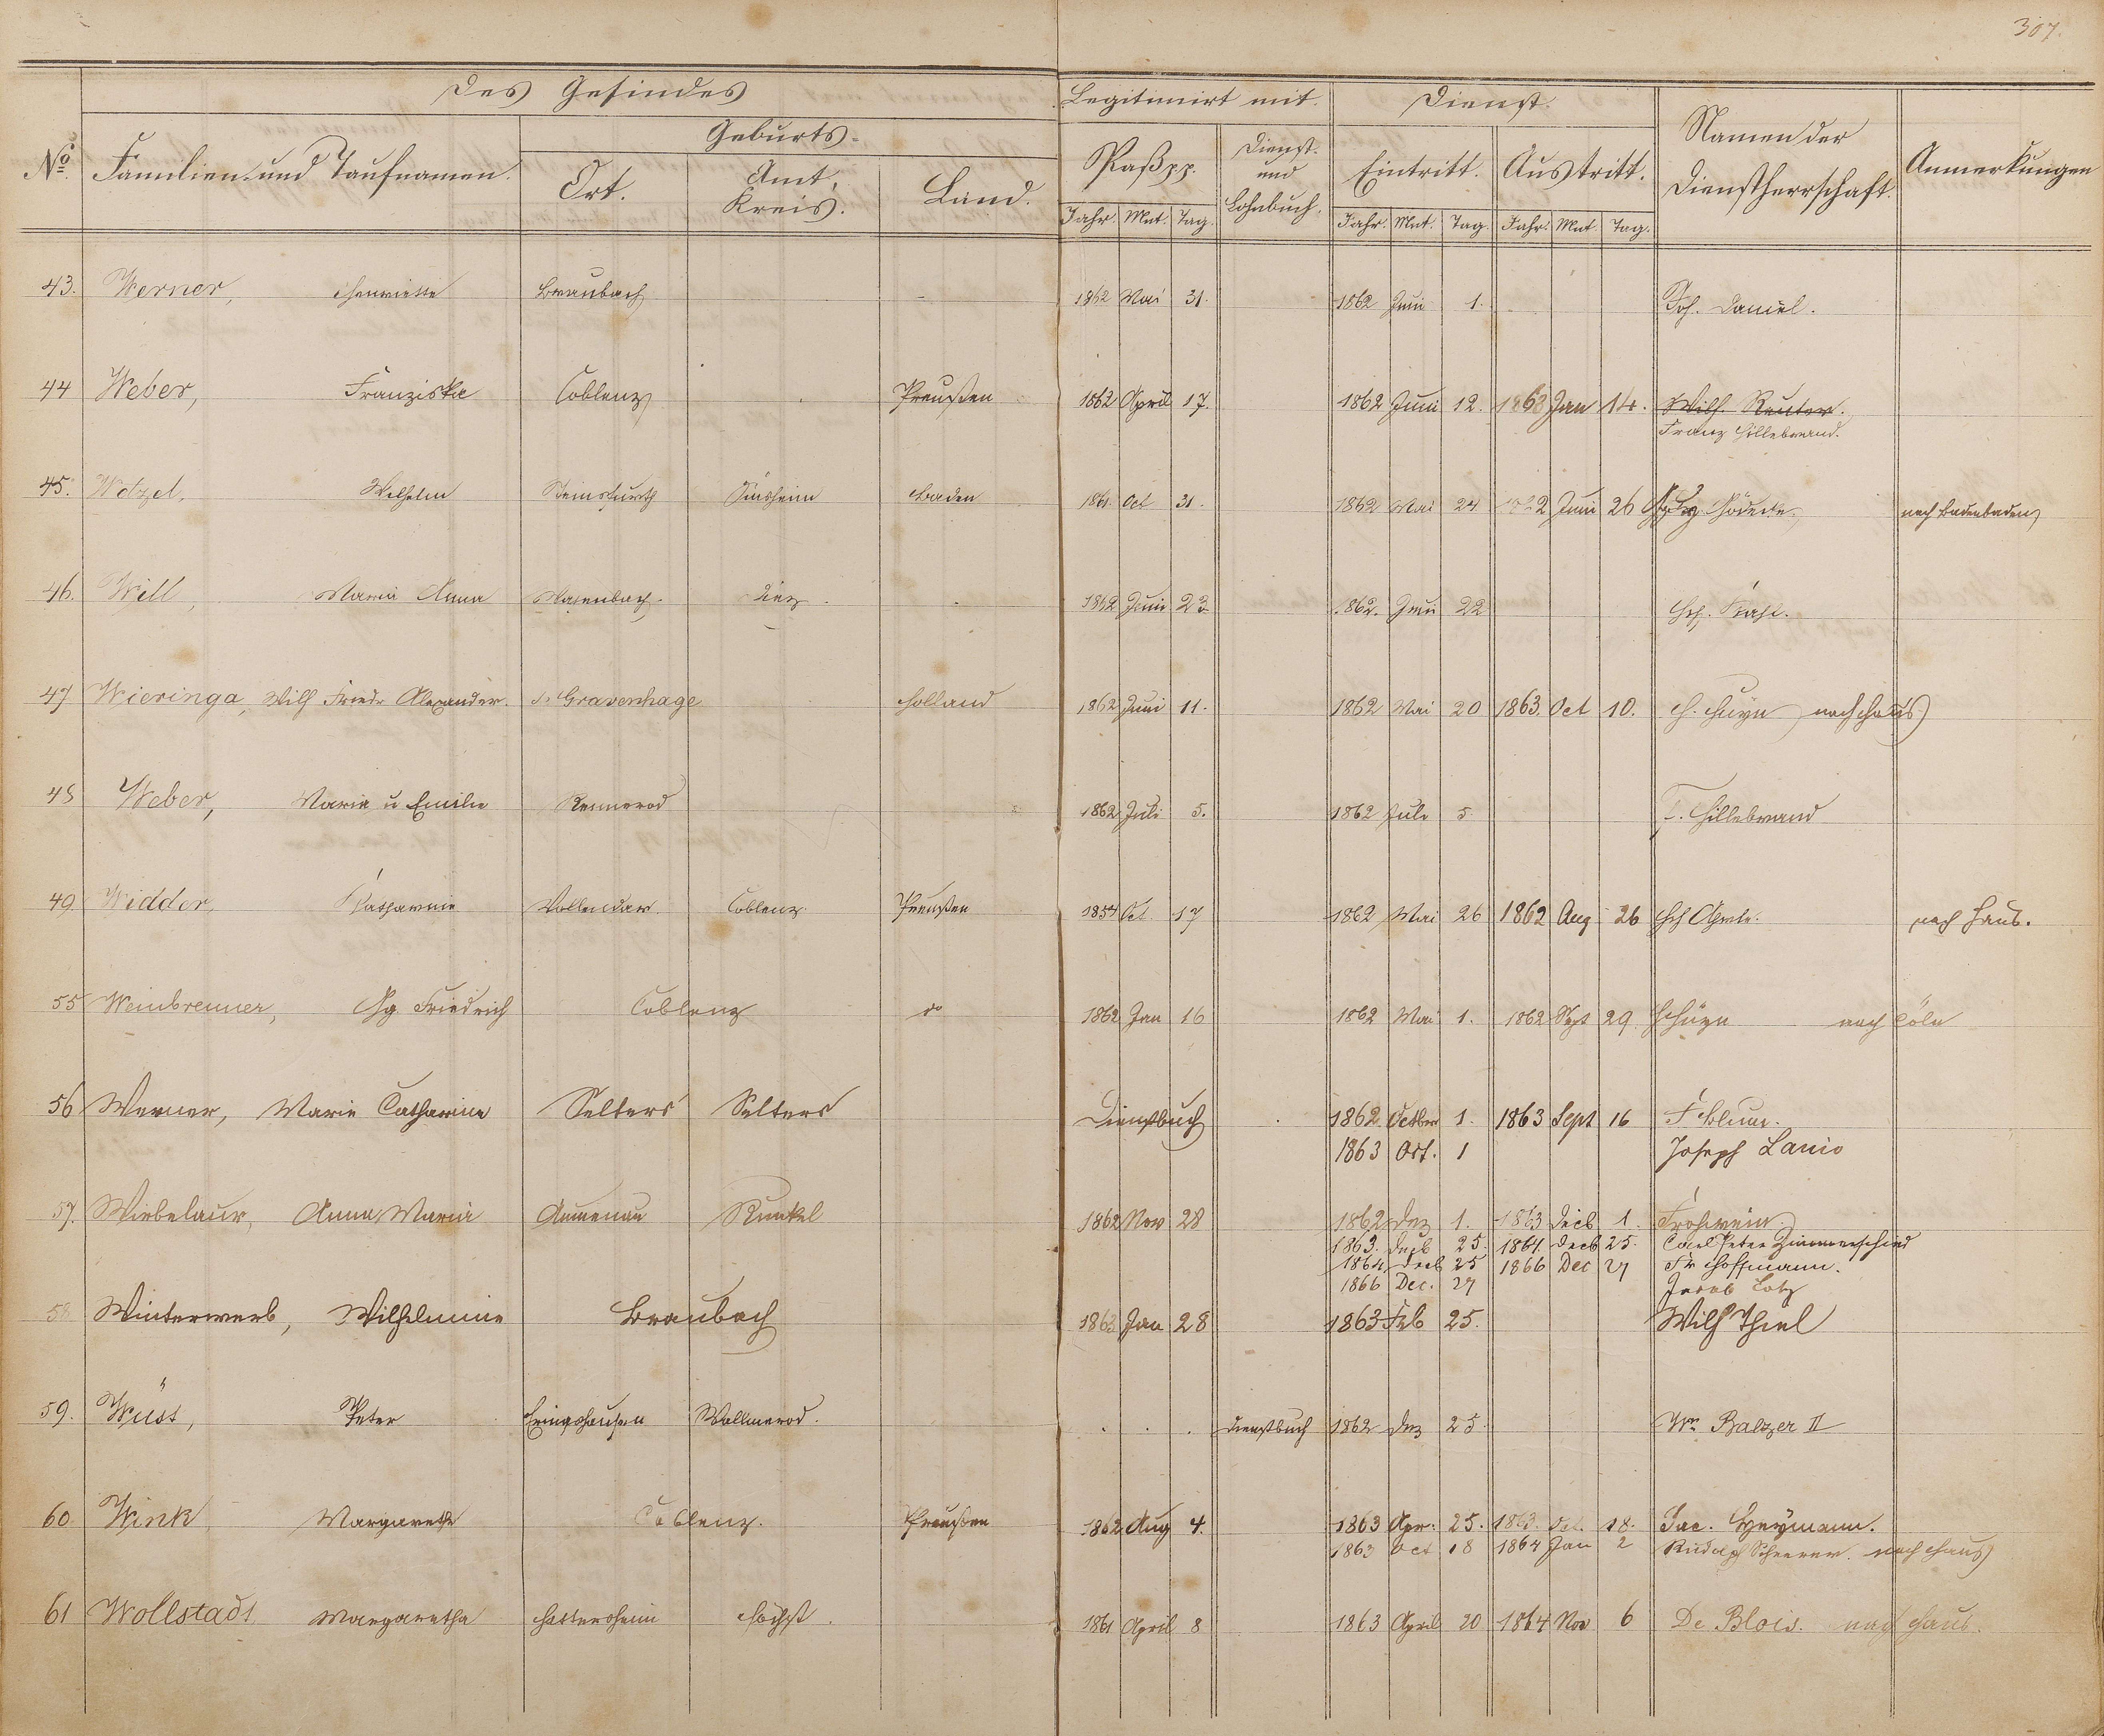 307.
Des Gesindes Legitimirt mit. Dienst.
No. Familien- und Taufnamen. Geburts- Paß pp. Dienst- und Lohnbuch. Eintritt. Austritt. Namen der Dienstherrschaft. Anmerkungen
Ort. Amt, Kreis. Land.
Jahr. Mnt. Tag. Jahr. Mnt. Tag. Jahr. Mnt. Tag.
43. Werner, Henriette Braubach 1862 Mai 31. 1862 Juni 1. Joh. Daniel.
44 Weber, Franziska Coblenz Preußen 1862 April 17. 1862 Juni 12. 1863 Jan 14. Wilh. Reuter.
Franz Hillebrand.
45. Wetzel, Wilhelm Steinsfurth Sinsheim Baden 1861. Oct 31. 1862 Mai 24 1862 Juni 26 Gödecke. nach Badenbaden
46. Will, Maria Anna Diez 1862 Juni 22 1862. Juni 22 Hch. Kahl.
47 Wieringa, Wilh Friedr Alexander. s' Gravenhage Holland 1862 Juni 11. 1862 Mai 20 1863. Oct 10. H. Huyn nach Haus
48 Weber, Maria u Emilie Rennerod 1862 Juli 5. 1862 Juli 5. F. Hillebrand
49 Widder, Katharine Vallendar. Coblenz Preußen 1854 Oct. 17 1862 Mai 26 1862 Aug 26 Hch nach Haus.
55 Weinbrenner, Gg. Friedrich Coblenz do 1862 Jan 16 1862 Mai 1. 1862 Sept 29 Huyn nach Cöln
56 Werner, Marie Catharine Selters Selters Dienstbuch 1862 Octber 1. 1863 Sept 16 F Blum.
1863 Oct. 1 Joseph Lanio
57. Wirbelauer, Anna Maria Aumenau Runkel 1862 Nov 28 1862 Dez 1. 1863 Decb 1. Frohwein
1863. Decb 25. 1864. Decb 25. Carl Peter Zimmerschied
1864 Decb 25 1866 Dec 27 Fr Hoffmann.
1866 Dec. 27 Jacob Lotz
58 Winterwerb, Wilhelmine Braubach 1863 Jan 28 1863 Feb 25. Wilh Thiel
59. Wüst, Peter Eringshausen Wallmerod. Dienstbuch 1862 Dez 25. Wm Balzer II
60 Wink Margarethe Coblenz. Preußen 1862 Aug 4. 1863 Apr. 25. 1863. Oct. 18. Jac. Heymann.
1863 Oct 18 1864 Jan 2 Rudolph Scheerer. nach Haus
61 Wollstadt Margaretha Hattersheim Höchst. 1861 April 8 1863 April 20 1864 Nov 6 De Blois. nach Haus.